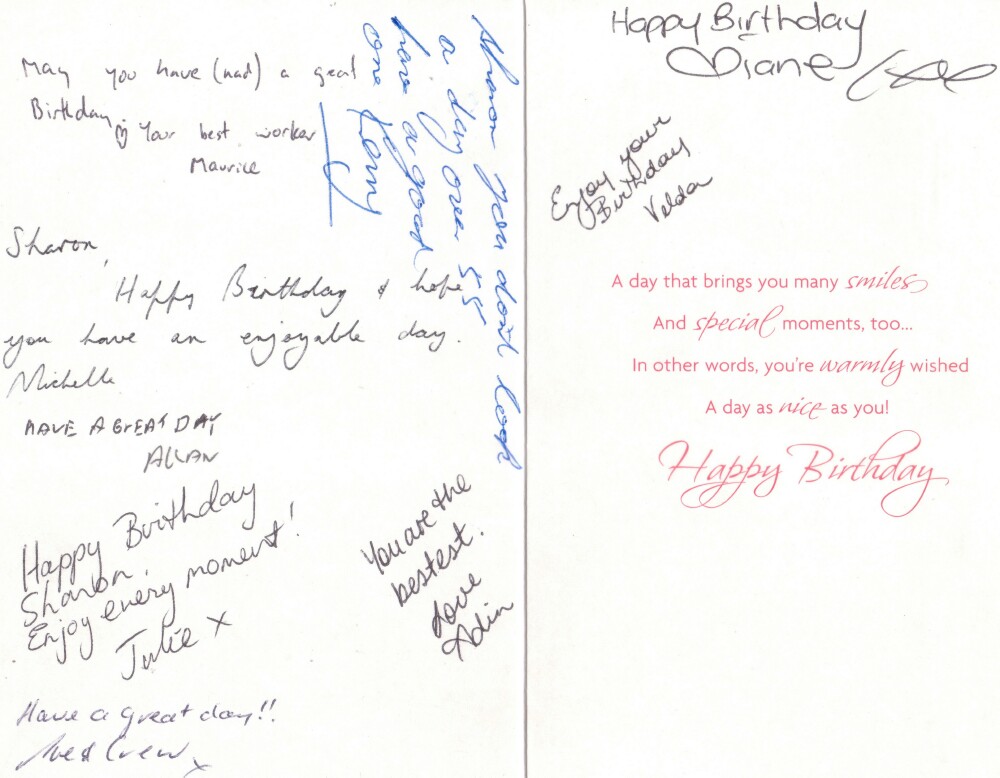 May you have (had) a great
Birthday.
♡ Your best worker
Maurice
Sharon you don't look
a day over 55
have a good
one
Sharon,
Happy Birthday & hope
you have an enjoyable day.
Michelle
HAVE A GREAT DAY
ALLAN
Happy Birthday
Sharon.
Enjoy every moment!
Julie x
You are the
bestest.
Love
Have a great day!!
x
Happy Birthday
Diane
Enjoy your
Birthday
Velda
A day that brings you many smiles
And special moments, too...
In other words, you're warmly wished
A day as nice as you!
Happy Birthday